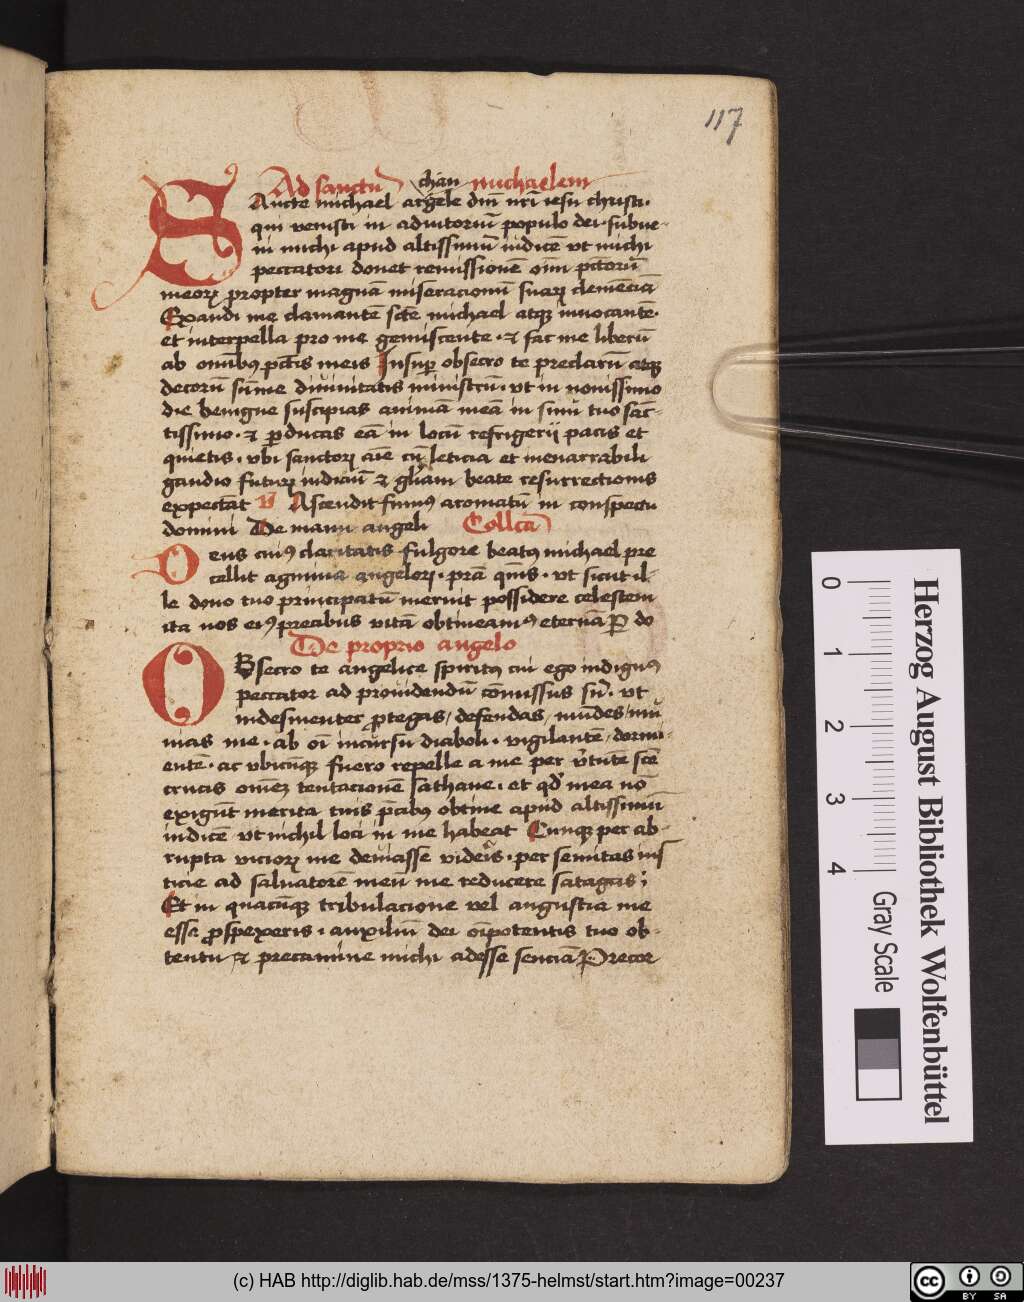 117
Ad sanctū michaelem
SAncte michael archāgele dn̄i nr̄i iesu christi·
qui venisti in adiutoriū populo dei· subue-
ni michi apud altissimū iudicē vt michi
peccatori donet remissionē oīm pctōrū
meoꝝ propter magnā miseracionū suaꝝ clemēciā
Exaudi me clamantē sctē michael atqꝫ inuocantē·
et interpella pro me gemiscente· ⁊ fac me liberū
ab omībꝰ pctīs meis Insuꝑ obsecro te preclarū atqꝫ
decorū sūme diuinitatis ministrū· vt in nouissimo
die benigne suscipias animā meā in sinu tuo sāc-
tissimo· ⁊ ꝑducas eā in locū refrigerij pacis et
quietis· vbi sanctoꝝ aīe cū leticia et inenarrabili
gaudio futurꝝ iudiciū ⁊ gl̄iam beate resurrectionis
expectāt V̄ Ascendit fumꝰ aromatū in conspectu
domini De manu angeli Collcā
Deus cuiꝰ claritatis fulgore beatꝰ michael pre
cellit agmina angeloꝝ· prā qm̄s· vt sicut il-
le dono tuo principatū meruit possidere celestem
ita nos eiꝰ precibus vitā obtineamꝰ eternā P do
De proprio angelo
OBsecro te angelice spiritꝰ cui ego indignꝰ
peccator ad prouidendū cōmissus sū· vt
indesinenter ꝓtegas/ defendas/ mūdes/ mū
nias me· ab oī incursu diaboli· vigilantē/ dormi-
entē· ac vbicūqꝫ fuero repelle a me per v̄tutē scē
crucis omēꝫ tentacionē sathane· et qd̓ mea nō
exigūt merita tuis p̄cibꝰ obtine apud altissimū
iudicē vt nichil loci in me habeat Cunqꝫ per ab-
rupta vicioꝝ me deuiasse videris· per semitas iusˉ
ticie ad saluatorē meū me reducere satagas·
Et in quacūqꝫ tribulacione vel angustia me
esse ꝓspexeris· auxiliū dei oīpotentis tuo ob-
tentu ⁊ precamine michi adesse senciā Precor
Herzog August Bibliothek Wolfenbüttel
0 1 2 3 4
Gray Scale
(c) HAB http://diglib.hab.de/mss/1375-helmst/start.htm?image=00237
cc BY SA